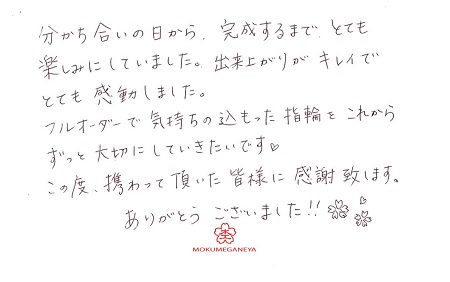 分かち合いの日から、完成するまで、とても
楽しみにしていました。出来上がりが キレイで
とても 感動しました。
フルオーダーで 気持ちの込もった 指輪を これから
ずっと 大切にしていきたいです♡
この度、携わって頂いた 皆様に 感謝致します。
ありがとう ございました!!
木
MOKUMEGANEYA